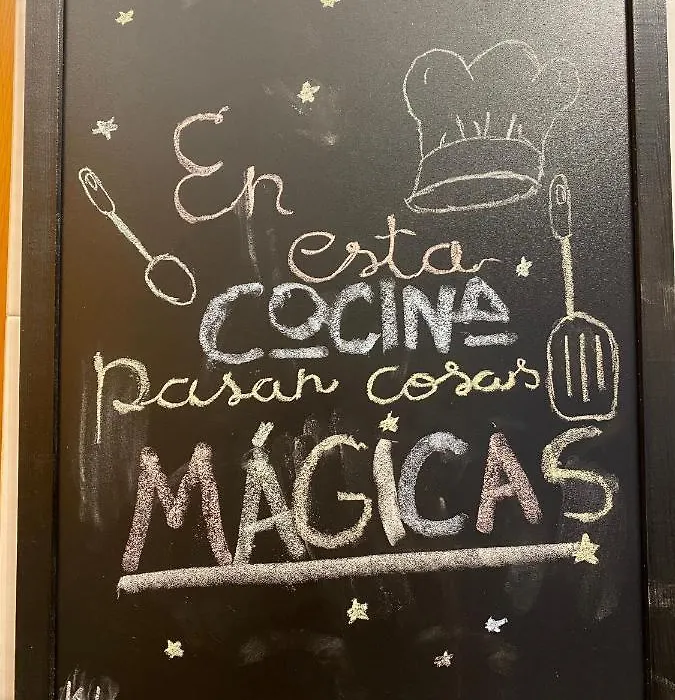 En
esta
COCINA
pasan cosas
MÁGICAS